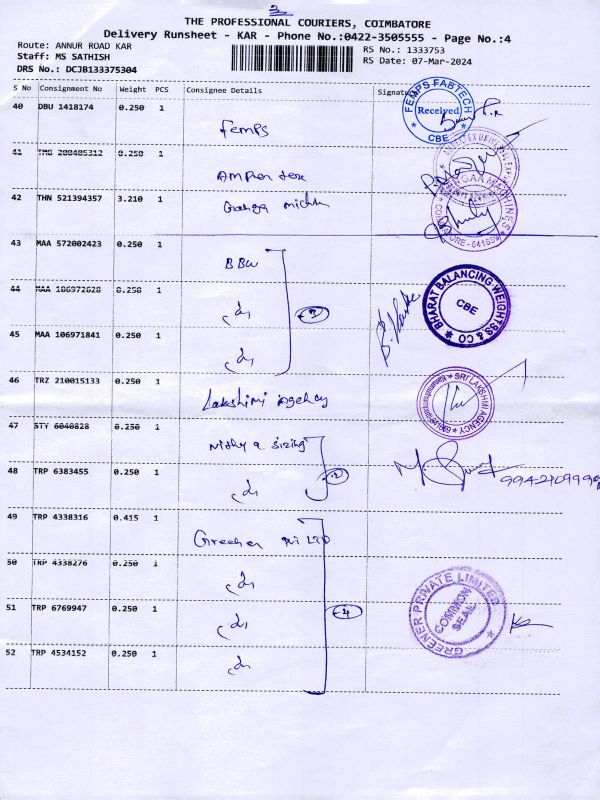 THE PROFESSIONAL COURIERS, COIMBATORE
Delivery Runsheet - KAR - Phone No.:0422-3505555 - Page No.:4
Route: ANNUR ROAD KAR
RS No.: 1333753
Staff: MS SATHISH
RS Date: 07-Mar-2024
DRS No.: DCJB133375304
S No Consignment No Weight PCS Consignee Details Signature
40 DBU 1418174 0.250 1 Femps
FEMPS FABTECH Received CBE
41 TMG 200405312 0.250 1
42 THN 521394357 3.210 1 Ganga
43 MAA 572002423 0.250 1 BBW
44 MAA 106972628 0.250 1
3
BHARAT BALANCING WEIGHTSS & CO CBE
45 MAA 106971841 0.250 1
46 TRZ 210015133 0.250 1 Lakshimi agency
SRI LAKSHMI AGENCY
47 STY 6040828 0.250 1 Nithya sizing
48 TRP 6383455 0.250 1
2
49 TRP 4338316 0.415 1
50 TRP 4338276 0.250 1
51 TRP 6769947 0.250 1
4
GREENER PRIVATE LIMITED COMMON SEAL
52 TRP 4534152 0.250 1